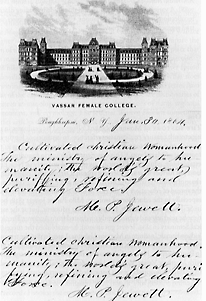 VASSAR FEMALE COLLEGE.
Poughkeepsie, N. Y. Jan. 30, 1864.
Cultivated christian Womanhood
The ministry of angels to hu
manity; the world's great,
purifying, refining and
elevating Force.
M. P. Jewett.
Cultivated christian Womanhood.
The ministry of angels to hu
manity; the world's great, puri
fying, refining and elevating
Force.
M. P. Jewett.